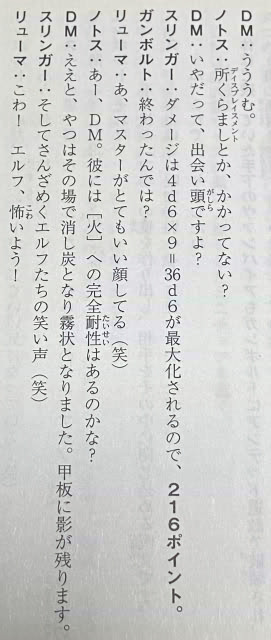 DM：うううむ。
ノトス：所くらましとか、かかってない？
ディスプレイスメント
DM：いやだって、出会い頭ですよ？
がしら
スリンガー：ダメージは4d6×9＝36d6が最大化されるので、216ポイント。
ガンボルト：終わったんでは？
リューマ：あ、マスターがとてもいい顔してる（笑）
ノトス：あー、DM。彼には［火］への完全耐性はあるのかな？
たいせい
DM：ええと、やつはその場で消し炭となり霧状となりました。甲板に影が残ります。
スリンガー：そしてさんざめくエルフたちの笑い声（笑）
リューマ：こわ！　エルフ、怖いよう！
こわ